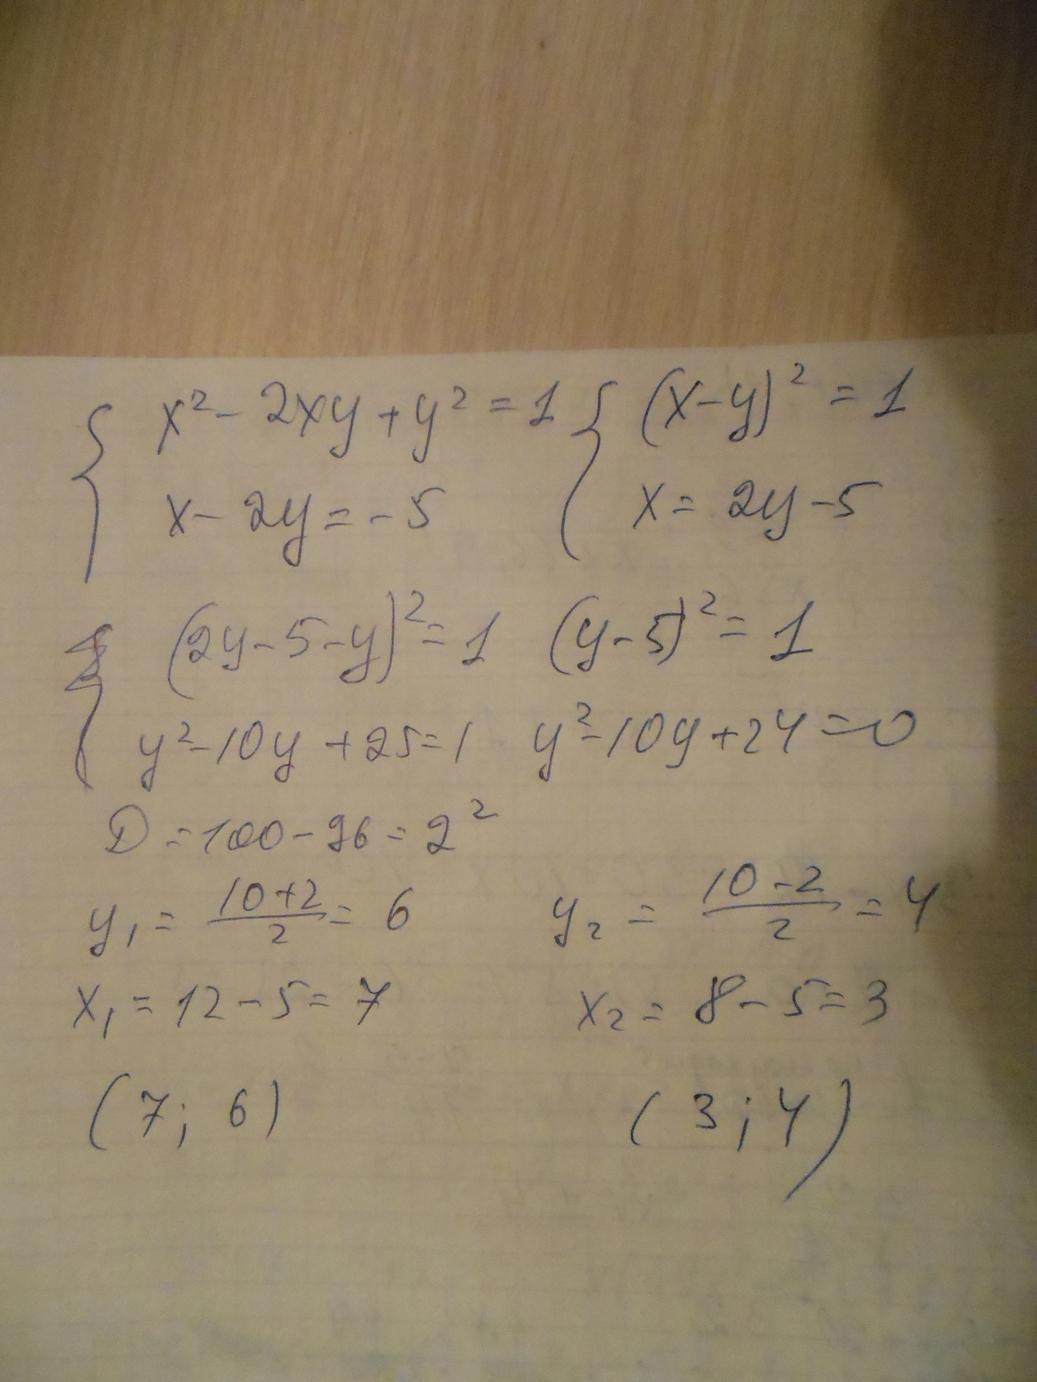 { x² - 2xy + y² = 1 { (x-y)² = 1
x - 2y = -5 x = 2y - 5
(2y - 5 - y)² = 1 (y - 5)² = 1
y² - 10y + 25 = 1 y² - 10y + 24 = 0
D = 100 - 96 = 2²
y₁ = (10+2)/2 = 6 y₂ = (10-2)/2 = 4
x₁ = 12 - 5 = 7 x₂ = 8 - 5 = 3
(7; 6) (3; 4)